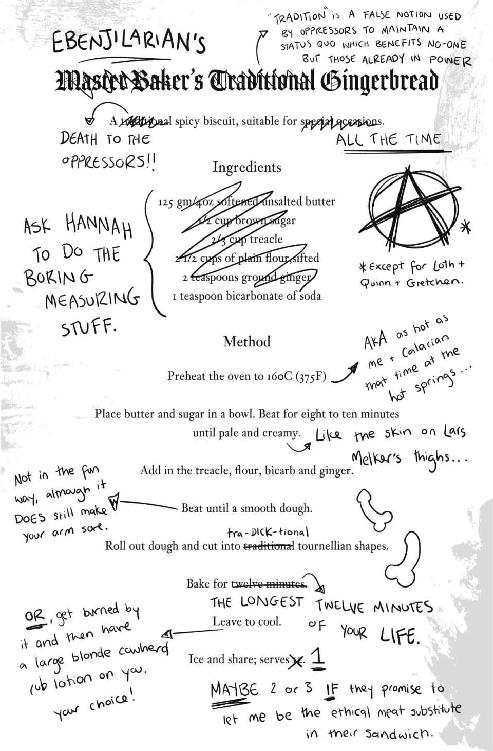 "TRADITION" IS A FALSE NOTION USED
BY OPPRESSORS TO MAINTAIN A
STATUS QUO WHICH BENEFITS NO-ONE
BUT THOSE ALREADY IN POWER
EBENJILARIAN'S
Master Baker's Traditional Gingerbread
A traditional spicy biscuit, suitable for special occasions.
DEATH TO THE
OPPRESSORS!!
ALL THE TIME
Ingredients
125 gm/4oz softened unsalted butter
1/2 cup brown sugar
2/3 cup treacle
2 1/2 cups of plain flour, sifted
2 teaspoons ground ginger
1 teaspoon bicarbonate of soda
ASK HANNAH
TO DO THE
BORING
MEASURING
STUFF.
A *
*Except for Loth +
Quinn + Gretchen.
Method
Preheat the oven to 160C (375F)
AKA as hot as
me + Calarian
that time at the
hot springs...
Place butter and sugar in a bowl. Beat for eight to ten minutes
until pale and creamy.
Like the skin on Lars
Melker's thighs...
Add in the treacle, flour, bicarb and ginger.
Not in the fun
way, although it
DOES still make
your arm sore.
Beat until a smooth dough.
tra-DICK-tional
Roll out dough and cut into traditional tournellian shapes.
Bake for twelve minutes.
THE LONGEST TWELVE MINUTES
OF YOUR LIFE.
Leave to cool.
OR, get burned by
it and then have
a large blonde cowherd
rub lotion on you.
your choice!
Ice and share; serves 1
MAYBE 2 or 3 IF they promise to
let me be the ethical meat substitute
in their sandwich.